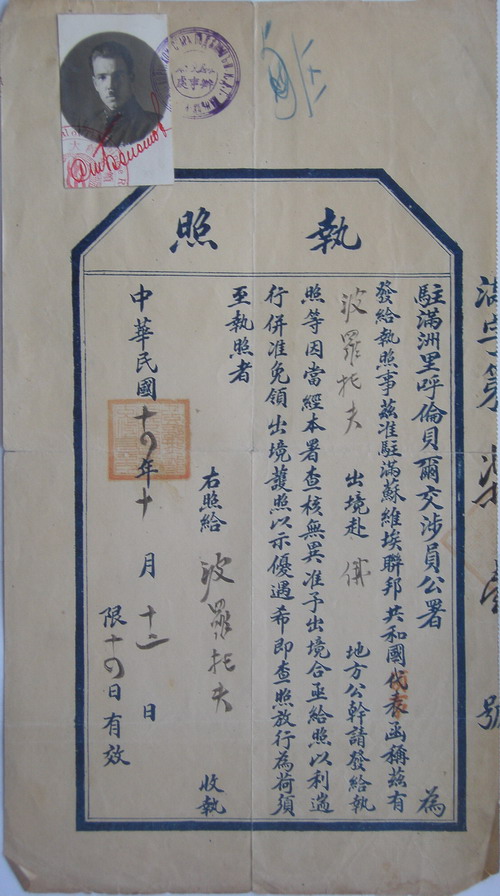 執照
駐滿洲里呼倫貝爾交涉員公署 為
發給執照事茲准駐滿蘇維埃聯邦共和國代表函稱茲有
波羅托夫 出境赴 地方公幹請發給執
照等因當經本署查核無異准予出境合亟給照以利遄
行併准免領出境護照以示優遇希即查照放行為荷須
至執照者
右照給 波羅托夫 收執
中華民國十四年十月十二日
限十四日有效
號